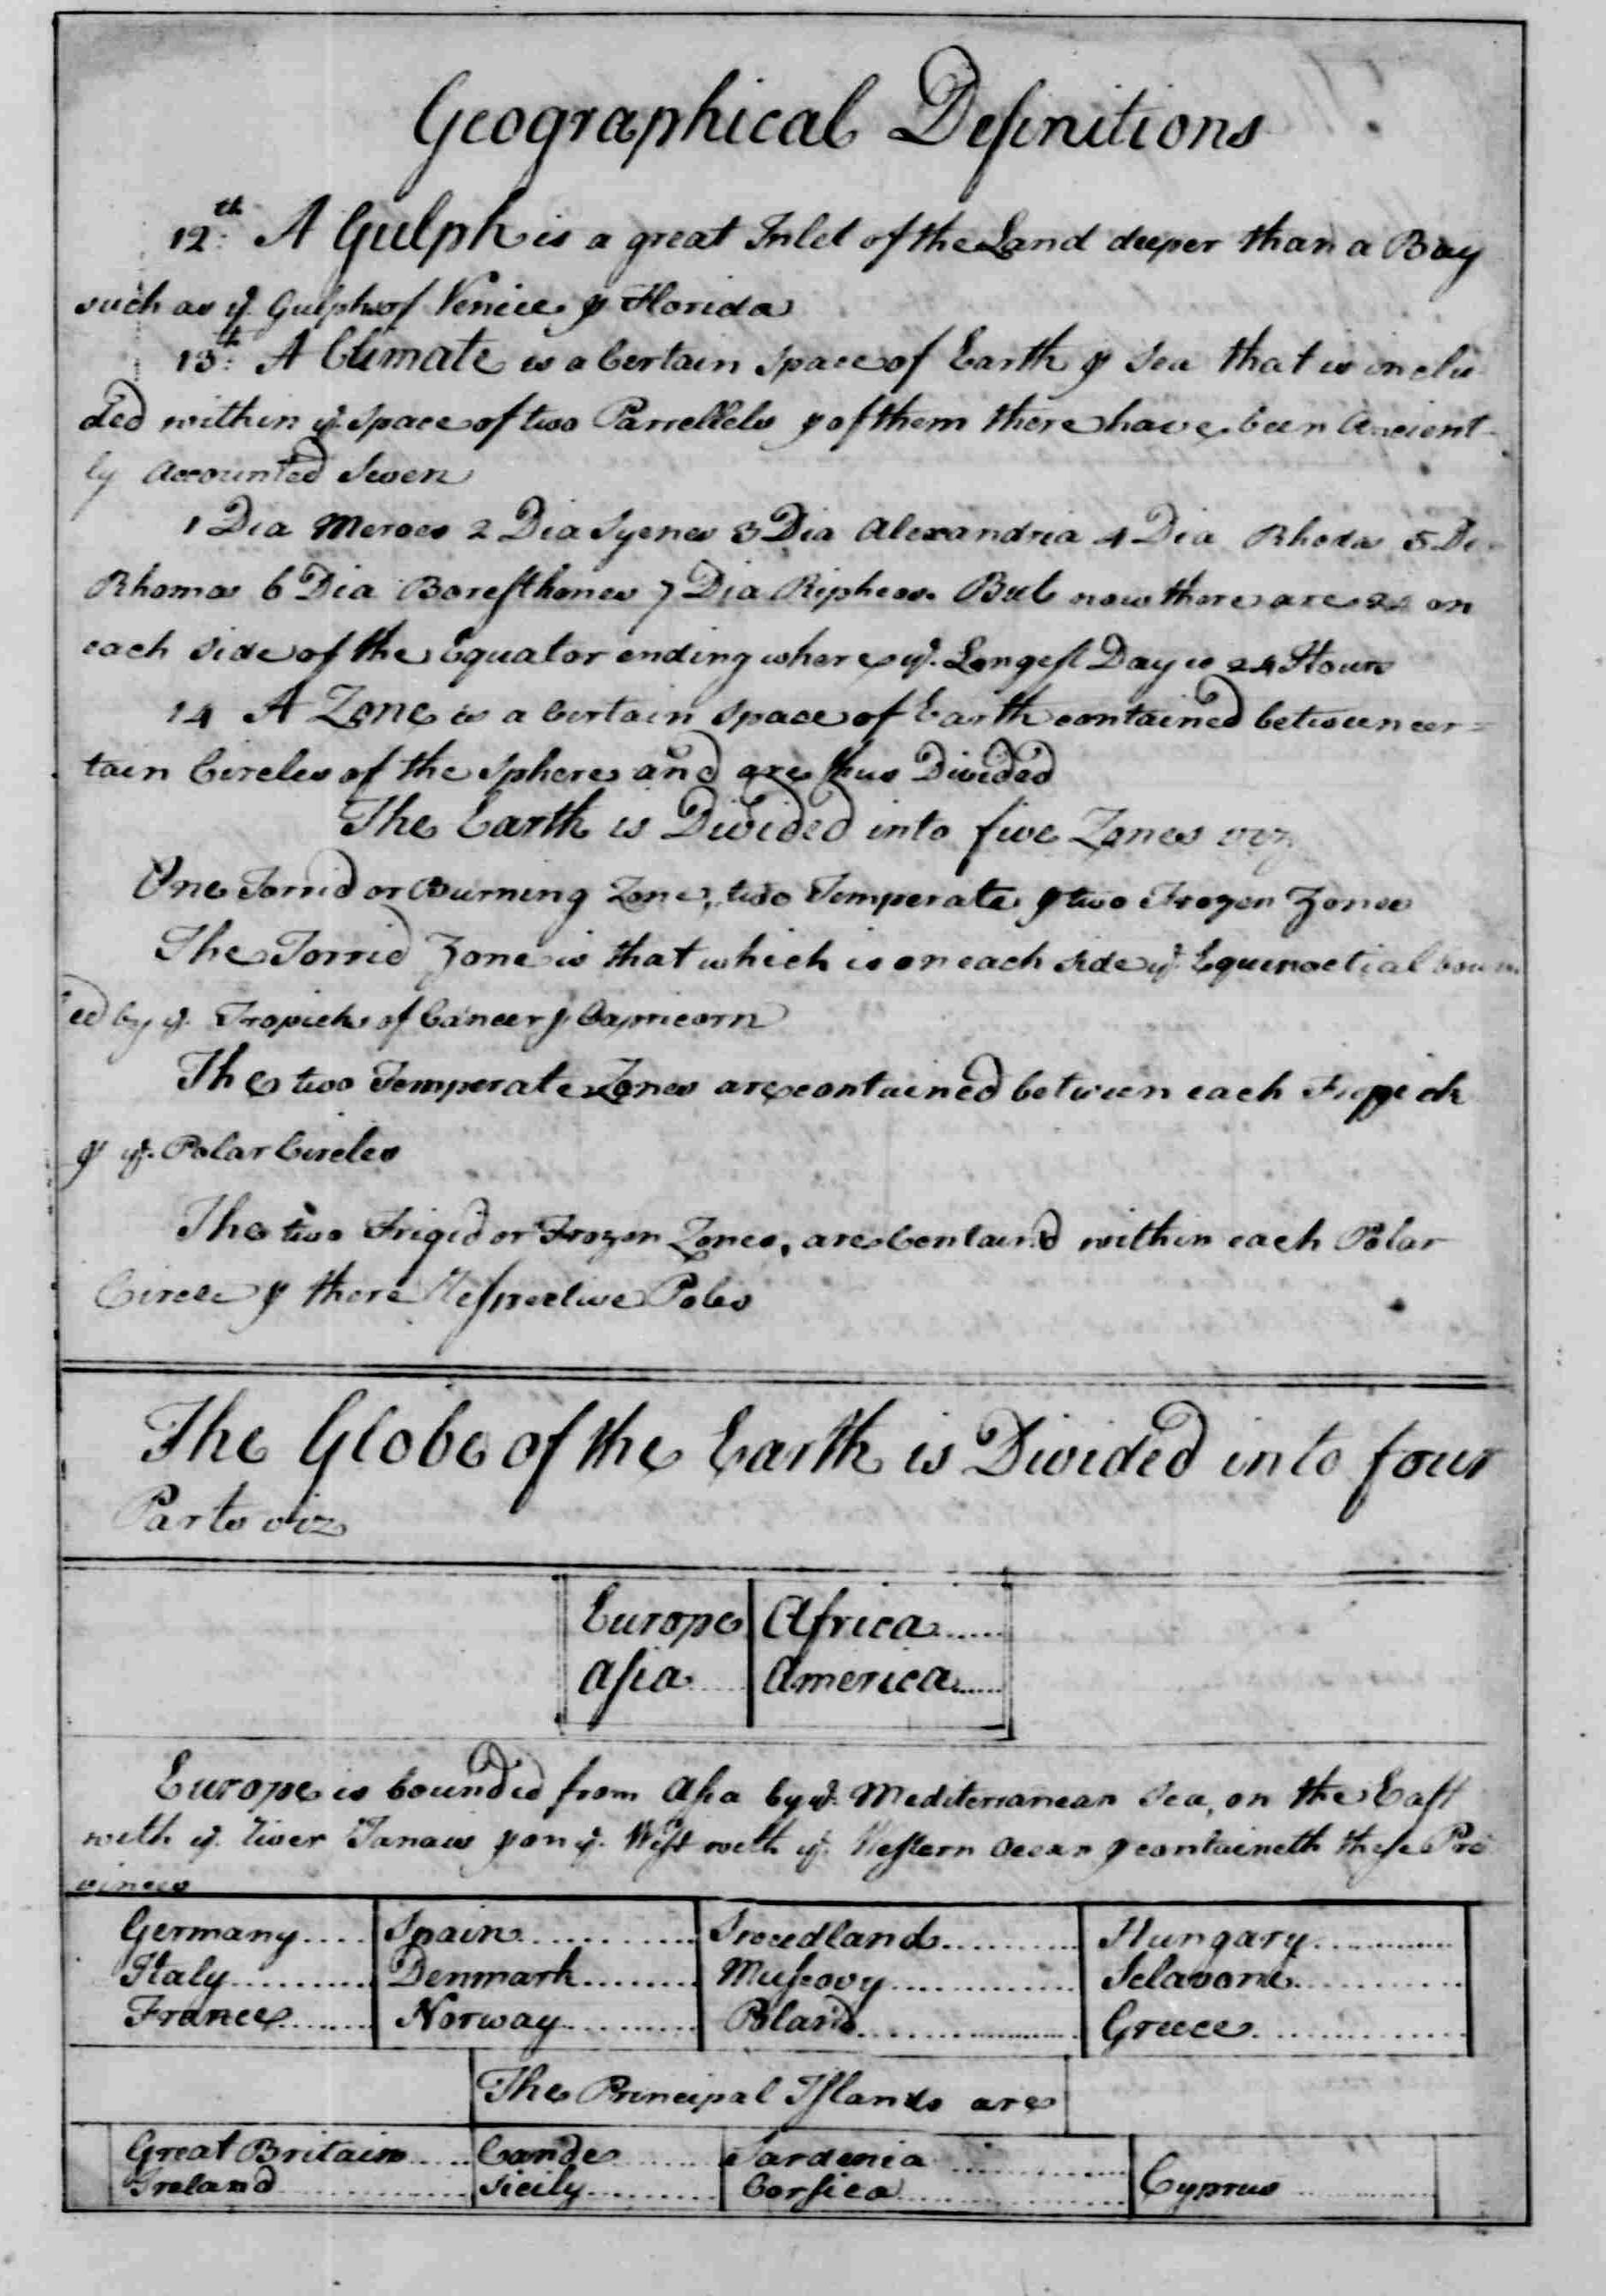 Geographical Definitions
12th. A Gulph is a great Inlet of the Land deeper than a Bay
such as ye. Gulphs of Venice & Florida
13th. A Climate is a Certain Space of Earth & Sea that is inclu
ded within ye. Space of two Parrellels & of them there have been Ancient-
ly Accounted Seven
1 Dia Meroes 2 Dia Syenes 3 Dia Alexandria 4 Dia Rhodas 5 Di
Rhomas 6 Dia Boresthones 7 Dia Ripheos. But now there are 24 on
each Side of the Equator ending where ye. Longest Day is 24 Hours
14 A Zone is a Certain Space of Earth contained between cer=
tain Circles of the Sphere and are thus Divided
The Earth is Divided into five Zones viz
One Torrid or Burning Zone, two Temperate & two Frozen Zones
The Torrid Zone is that which is on each Side ye. Equinoctial boun
ed by ye. Tropicks of Cancer & Capricorn
The two Temperate Zones are contained between each Tropick
& ye. Polar Circles
The two Frigid or Frozen Zones, are Contain'd within each Polar
Circle & there Respective Poles
The Globe of the Earth is Divided into four
Parts viz
Europe Africa
Asia America
Europe is bounded from Asia by ye. Mediterranean Sea, on the East
with ye. River Tanais & on ye. West with ye. Western Ocean & containeth these Pro
vinces
Germany Spain Swedland Hungary
Italy Denmark Muscovy Sclavone
France Norway Poland Greece
The Principal Islands are
Great Britain Cande Sardenia
Ireland Sicily Corsica Cyprus